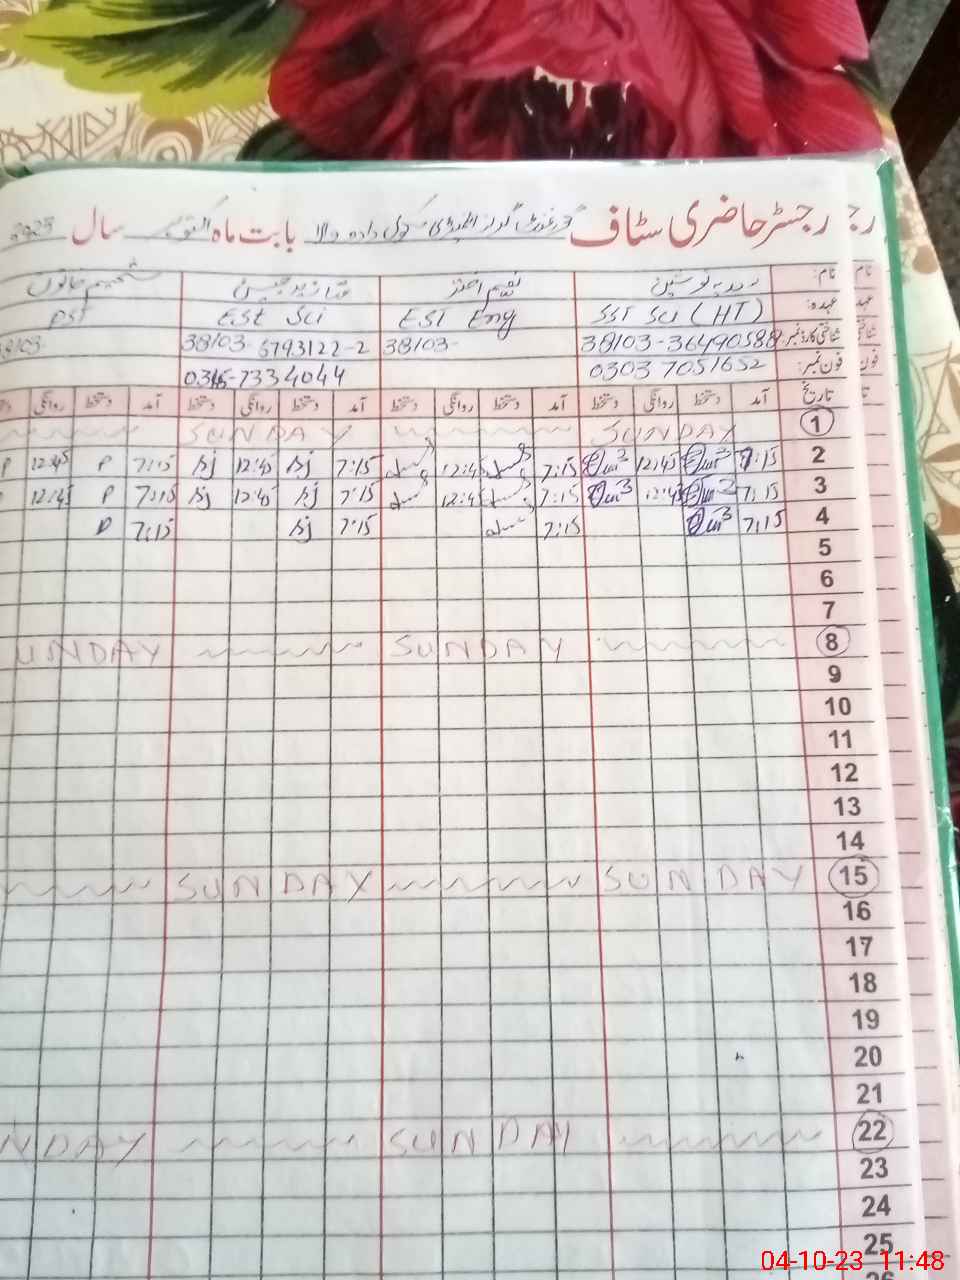 رجسٹر حاضری سٹاف گورنمنٹ گرلز ایلیمنٹری سکول دادو والا بابت ماہ اکتوبر سال 2023
نام: نسیم اختر شمیم خاتون
عہدہ: SST Sci (HT) EST Eng ESt Sci PST
شناختی کارڈ نمبر: 38103-36490588 38103- 38103-6793122-2 38103-
فون نمبر: 0303 7051652 0345-7334044
تاریخ آمد دستخط روانگی دستخط آمد دستخط روانگی دستخط آمد دستخط روانگی دستخط آمد دستخط روانگی
1 SUNDAY SUNDAY
2 7:15 12:45 7:15 12:45 7:15 Aj 12:45 Aj 7:15 P 12:45 P
3 7:15 12:45 7:15 12:45 7:15 Aj 12:45 Aj 7:15 P 12:45
4 7:15 7:15 7:15 Aj 7:15 P
5
6
7
8 SUNDAY UNDAY
9
10
11
12
13
14
15 SUNDAY SUNDAY
16
17
18
19
20
21
22 SUNDAY NDAY
23
24
25
04-10-23 11:48